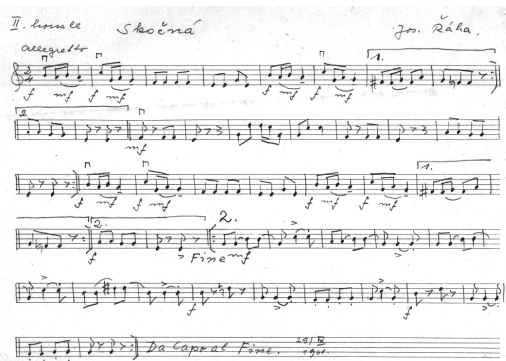 II. housle Skočná Jos. Řáha.
allegretto
1.
f mf f mf f mf f mf
2.
mf
1.
f mf f mf f mf f
2. 2.
f Fine mf f
f f
Da Capo al Fine. 29/IX 1961.